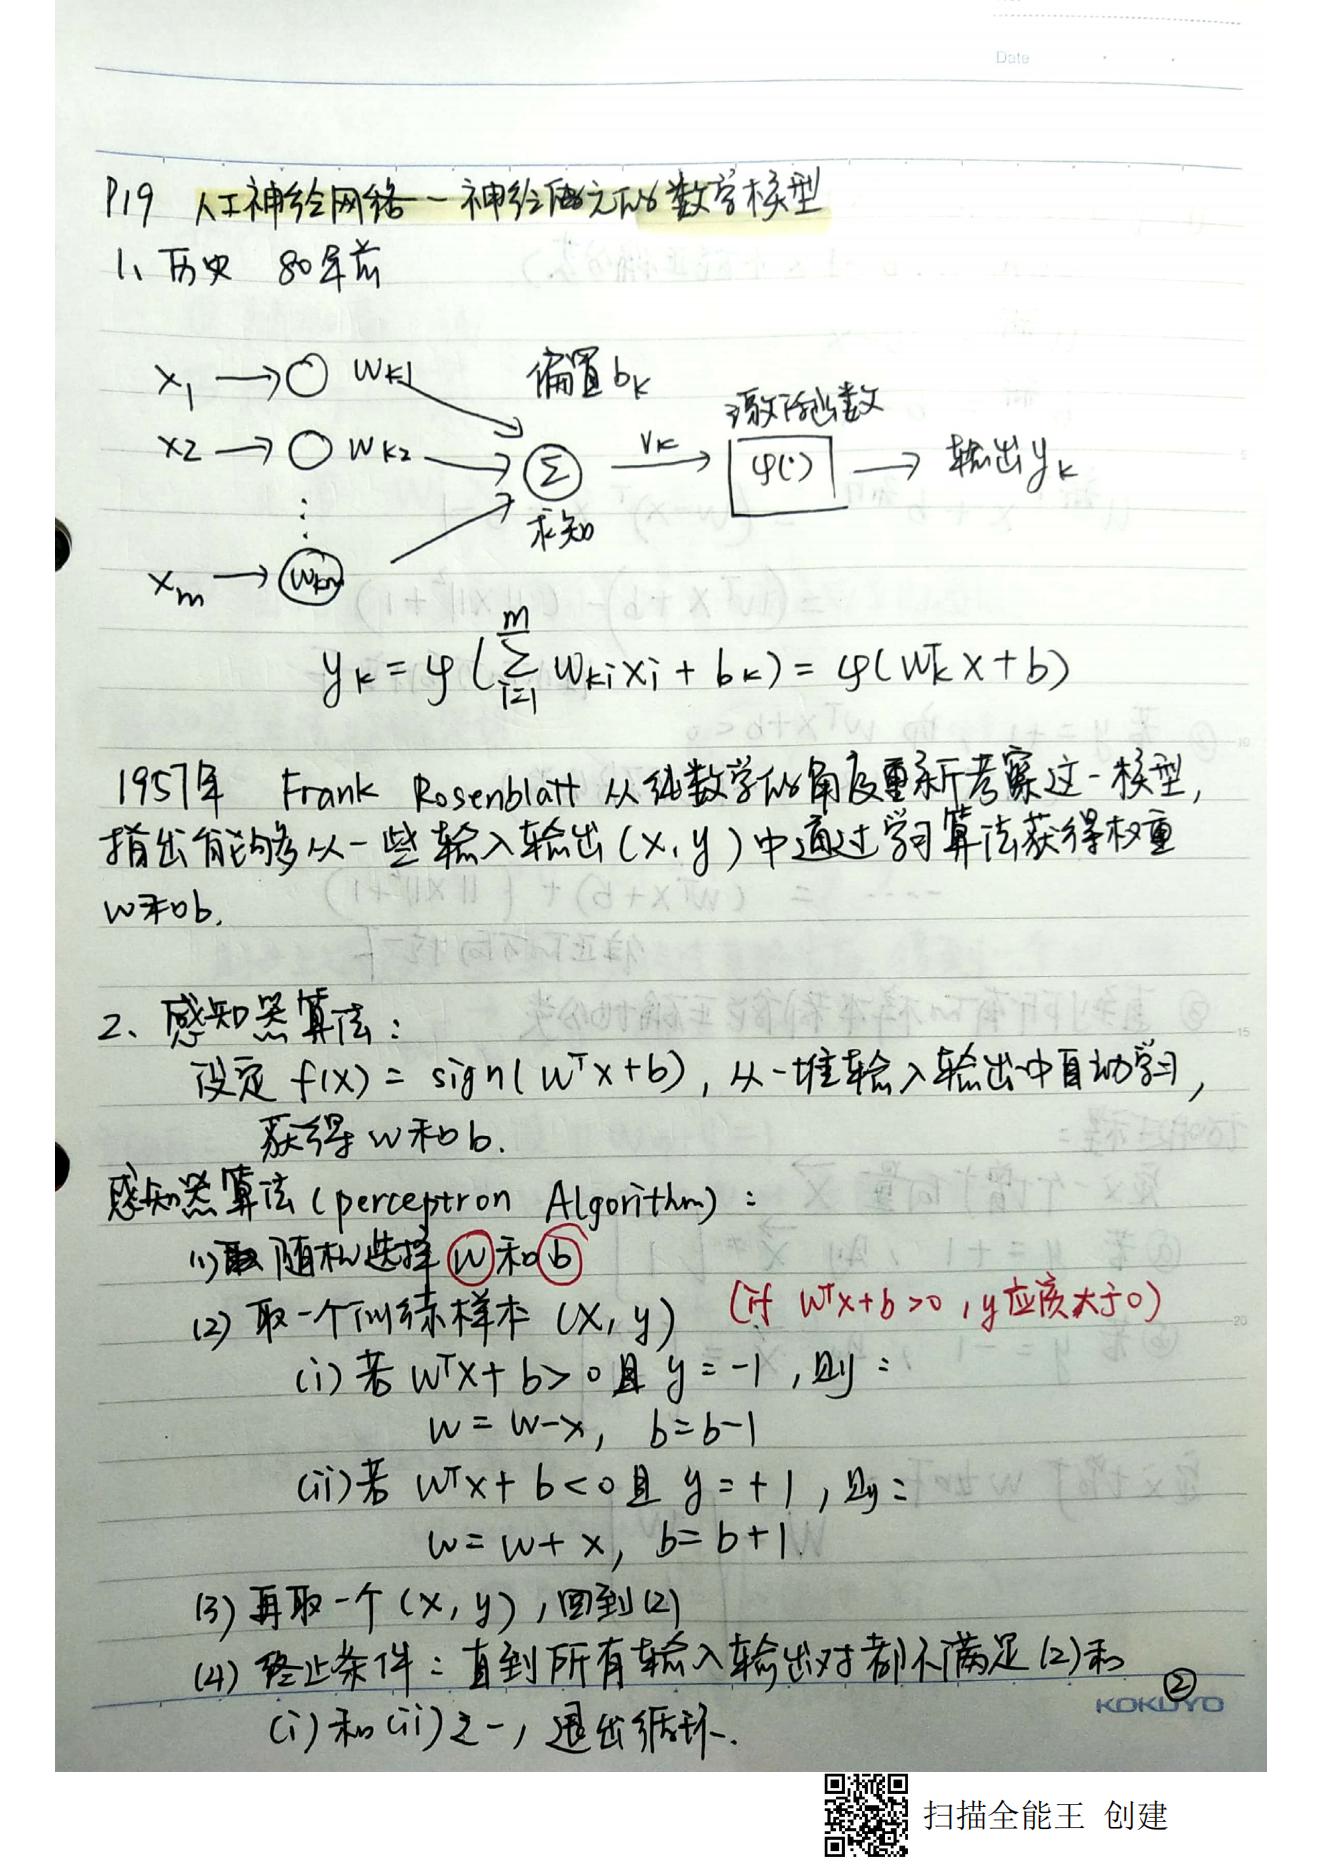 Date
P19 人工神经网络-神经元的数学模型
1、历史 80年前
x₁ → ○ wₖ₁ 偏置bₖ
激活函数
x₂ → ○ wₖ₂ → Σ vₖ → φ(·) → 输出yₖ
⋮ 求和
xₘ → wₖₘ
yₖ = φ(∑ᵢ₌₁ᵐ wₖᵢxᵢ + bₖ) = φ(wₖᵀx+b)
1957年 Frank Rosenblatt 从纯数学的角度重新考察这一模型,
指出能够从一些输入输出(x,y)中通过学习算法获得权重
w和b.
2、感知器算法:
设定 f(x) = sign(wᵀx+b), 从一堆输入输出中自动学习,
获得w和b.
感知器算法(perceptron Algorithm):
(1) 随机选择 w 和 b
(2) 取一个训练样本 (x, y) (if wᵀx+b>0, y应该大于0)
(i) 若 wᵀx+b>0 且 y=-1, 则:
w=w-x, b=b-1
(ii) 若 wᵀx+b<0 且 y=+1, 则:
w=w+x, b=b+1.
(3) 再取一个(x,y), 回到(2)
(4) 终止条件: 直到所有输入输出对都不满足(2)和
KOKUYO ②
(i)和(ii)之一, 退出循环.
扫描全能王 创建